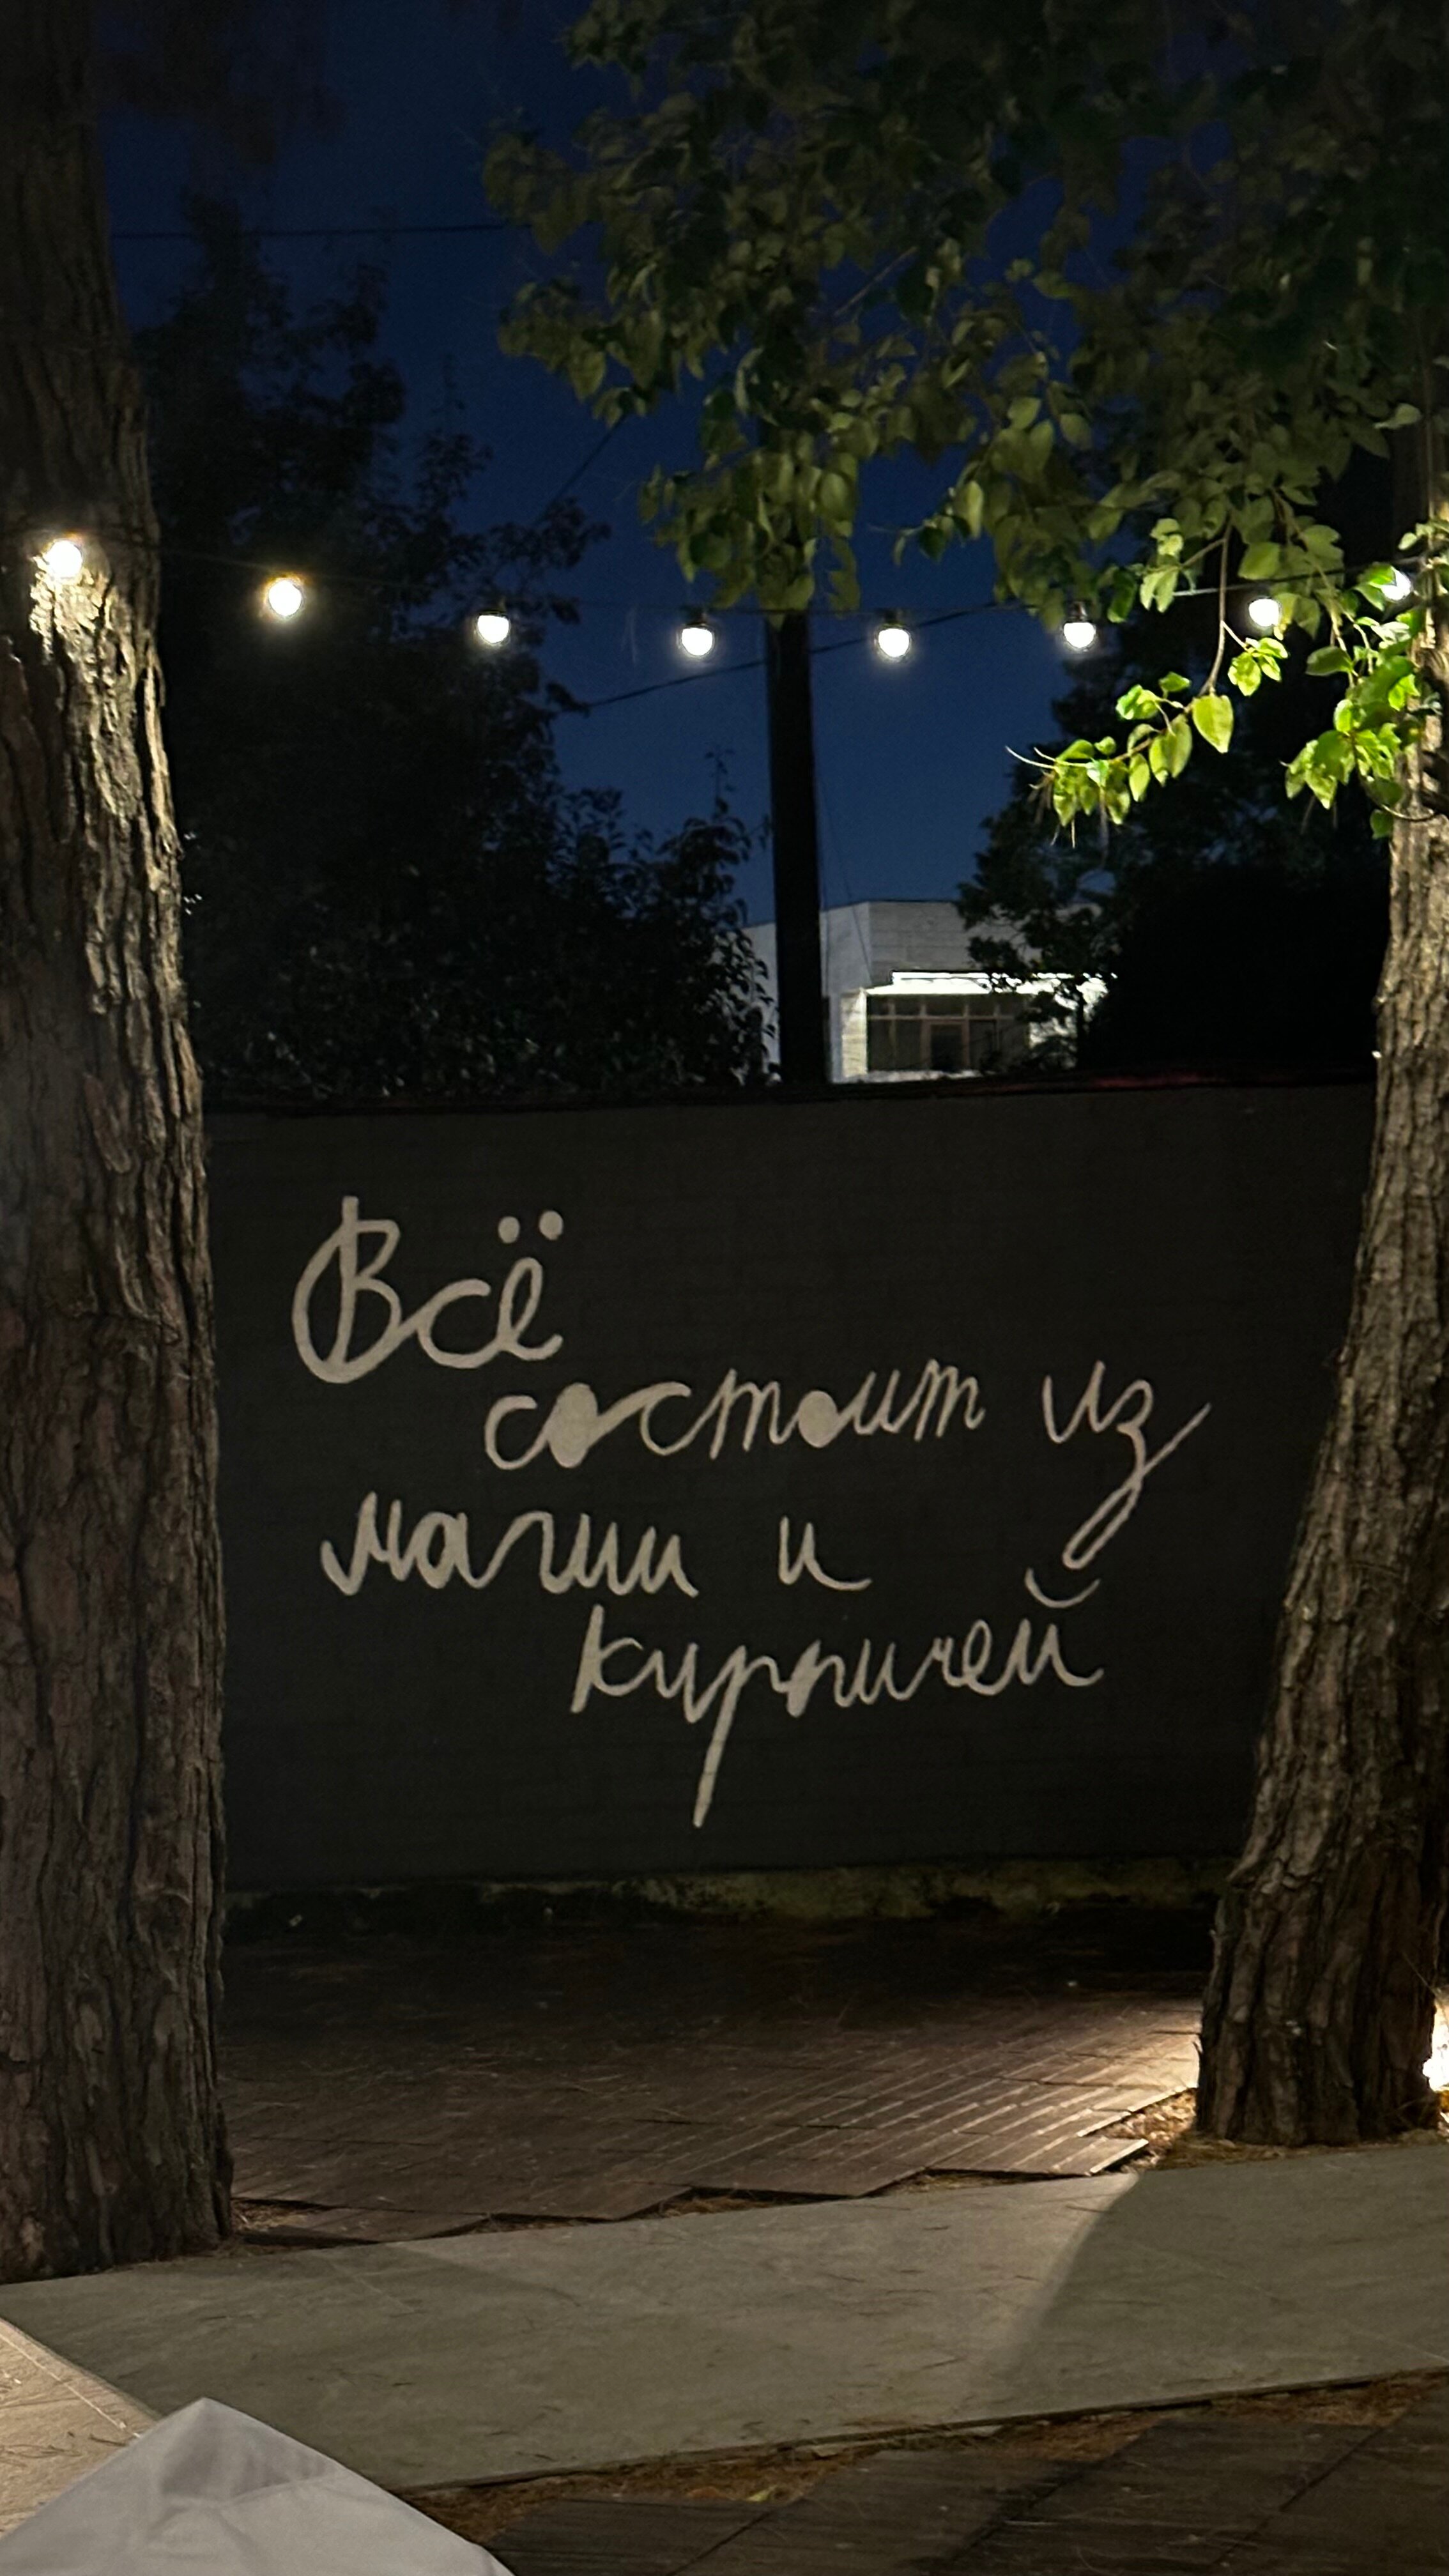 Всё
состоит из
магии и
кирпичей